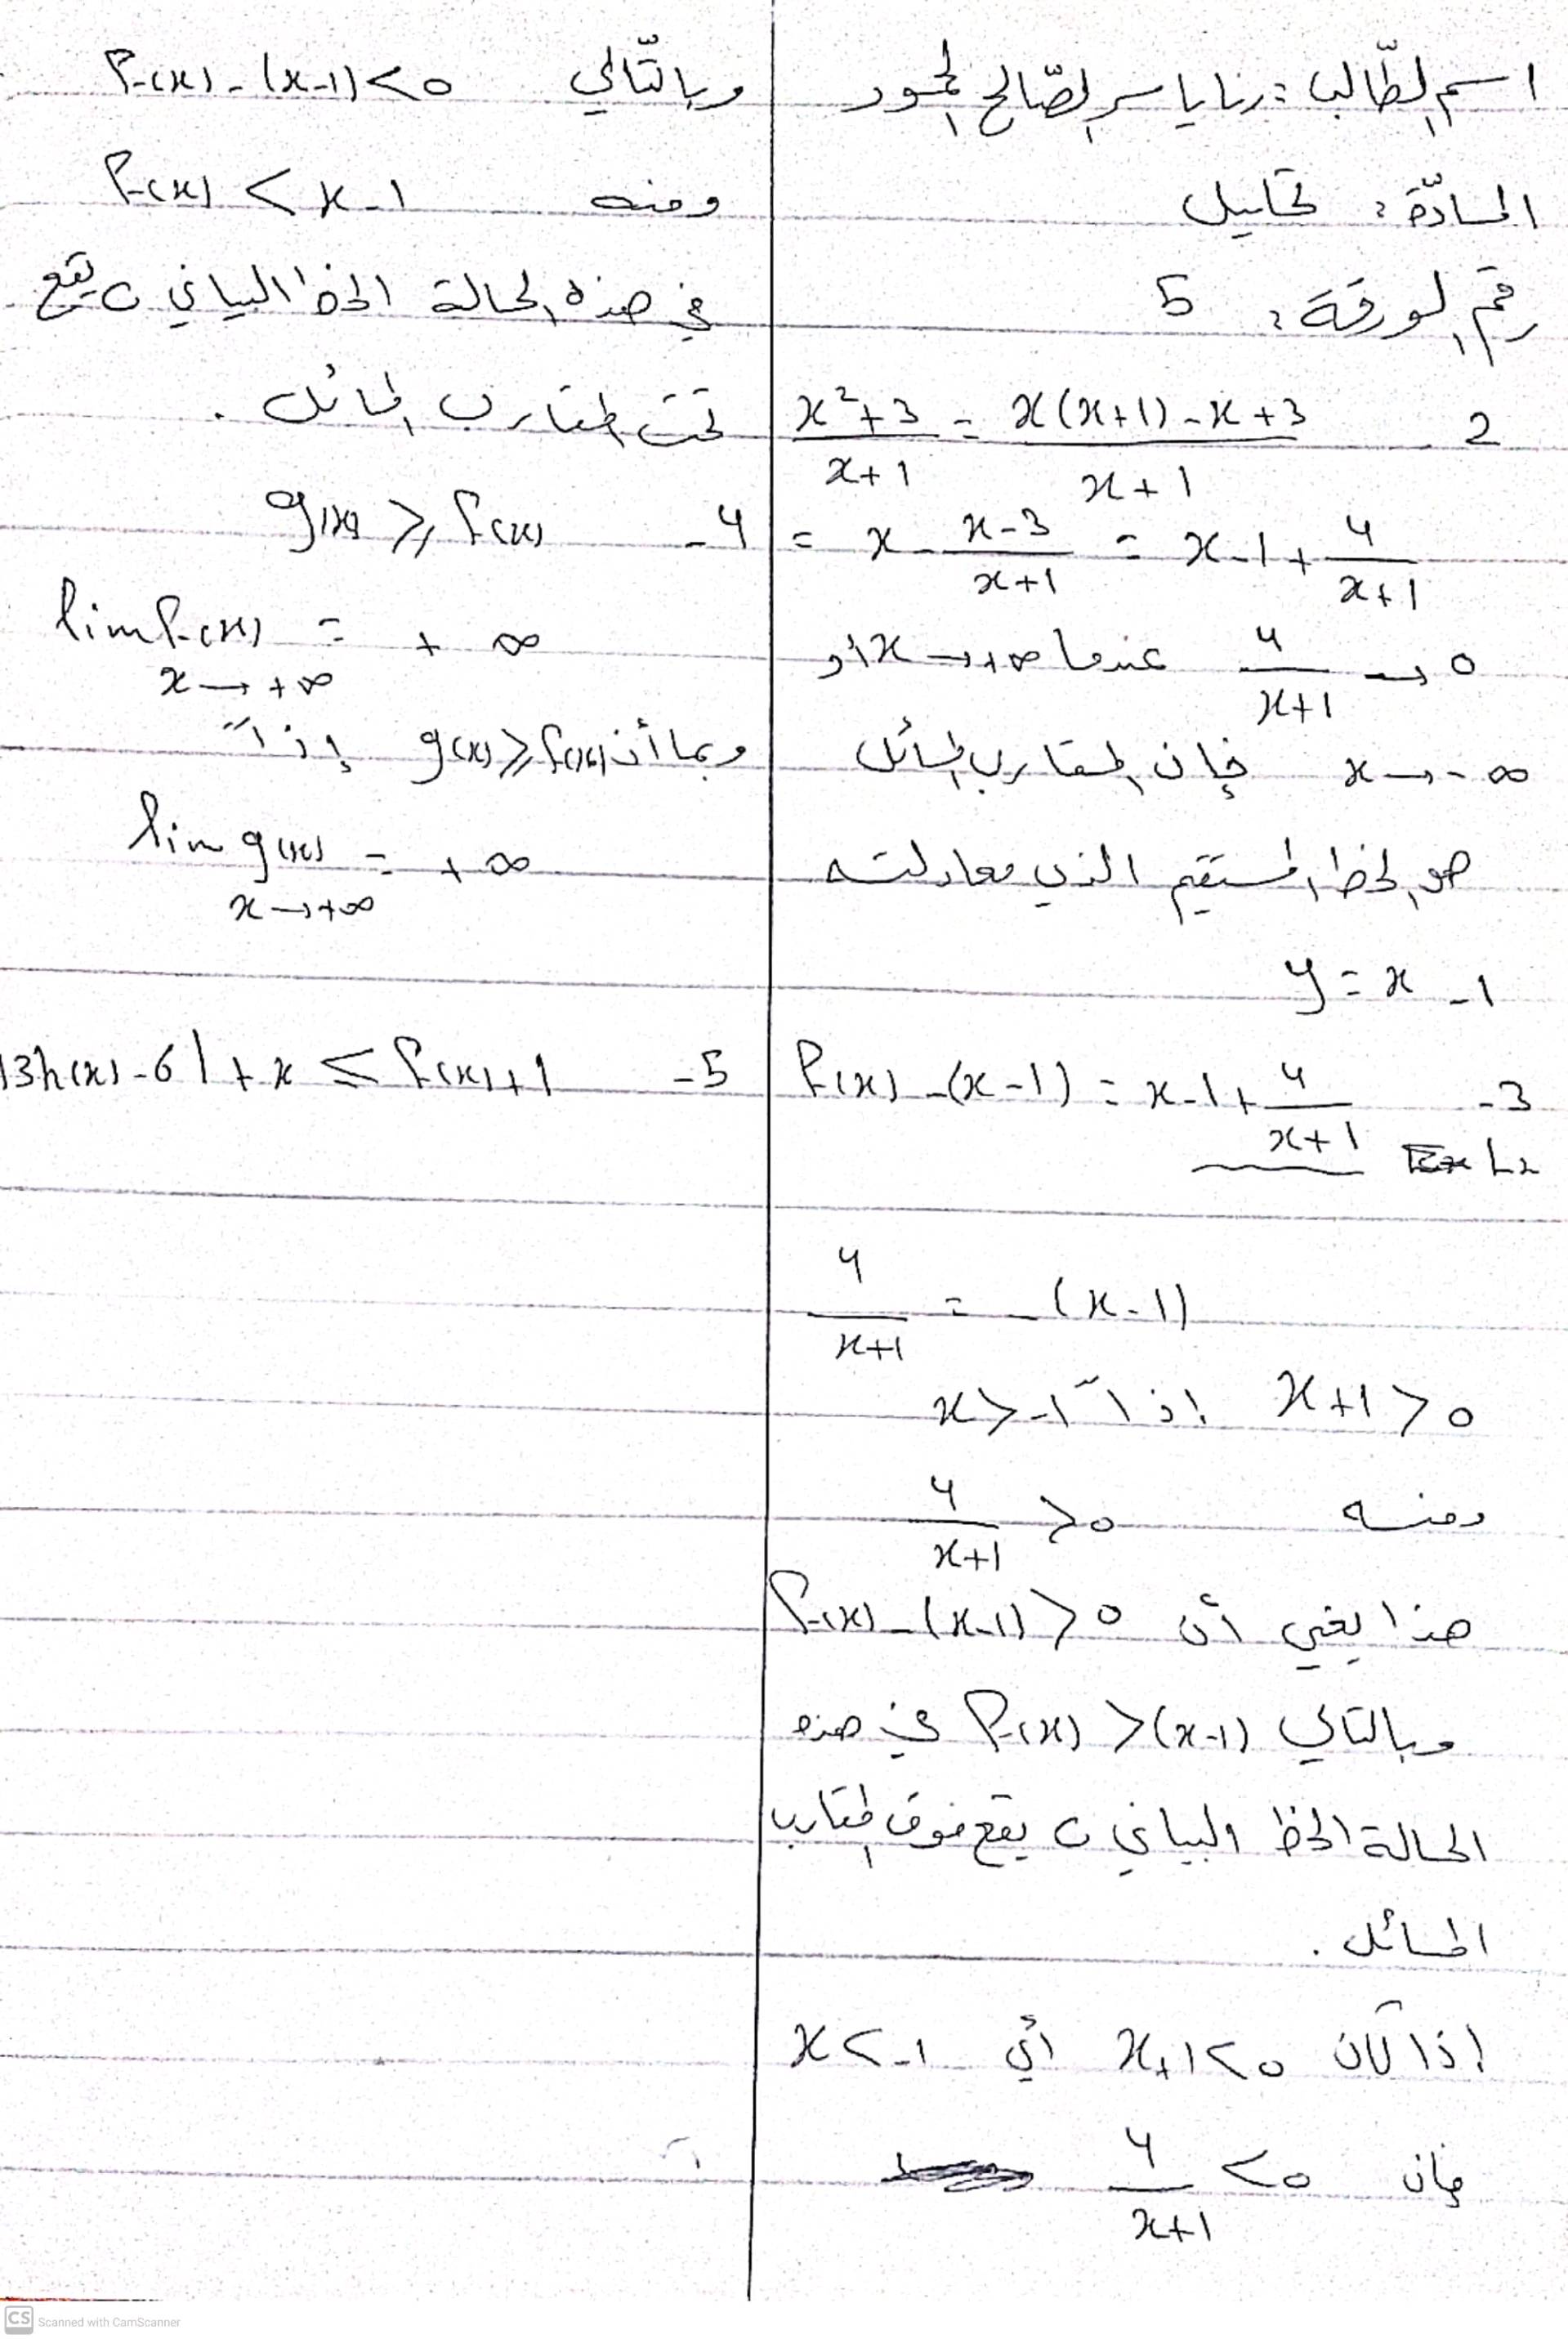 اسم الطّالب: رنا ياسر الصّالح الحمود
المادّة: تحليل
رقم الورقة: 5
2 - (x²+3)/(x+1) = (x(x+1)-x+3)/(x+1)
= x - (x-3)/(x+1) = x-1+ 4/(x+1)
4/(x+1) → 0 عندما x→+∞ أو
x→-∞ فإن المقارب المائل
هو الخط المستقيم الذي معادلته
y = x-1
3- f(x)-(x-1) = x-1+ 4/(x+1)
-(x-1) = 4/(x+1)
x+1>0 إذاً x>-1
ومنه 4/(x+1) >0
هذا يعني أن f(x)-(x-1)>0
وبالتالي f(x)>(x-1) في هذه
الحالة الخط البياني C يقع فوق المقارب
المائل.
إذا كان x+1<0 أي x<-1
فإن 4/(x+1) <0
وبالتّالي f(x)-(x-1)<0
ومنه f(x)<x-1
في هذه الحالة الخط البياني C يقع
تحت المقارب المائل.
4- g(x) ⩾ f(x)
lim f(x) = +∞
x→+∞
وبما أن g(x)⩾f(x) إذاً
lim g(x) = +∞
x→+∞
5- |3h(x)-6|+x ≤ f(x)+1
CS Scanned with CamScanner